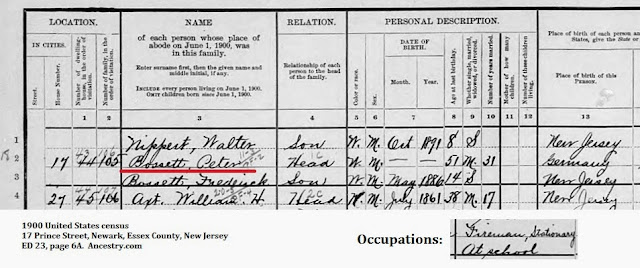 LOCATION. NAME RELATION. PERSONAL DESCRIPTION.
IN CITIES.
Street.
House Number.
Number of dwelling-house, in the order of visitation.
Number of family, in the order of visitation.
of each person whose place of abode on June 1, 1900, was in this family.
Enter surname first, then the given name and middle initial, if any.
INCLUDE every person living on June 1, 1900.
OMIT children born since June 1, 1900.
Relationship of each person to the head of the family.
Color or race.
Sex.
DATE OF BIRTH.
Month. Year.
Age at last birthday.
Whether single, married, widowed, or divorced.
Number of years married.
Mother of how many children.
Number of these children living.
Place of birth of each person and
States, give the State or
Place of birth of this PERSON.
1 2 3 4 5 6 7 8 9 10 11 12 13
1 Nippert, Walter Son W. M. Oct 1891 8 S New Jersey
2 17 44 105 Bossett, Peter Head W. M. — — 51 M 31 Germany
3 Bossett, Frederick Son W. M. May 1886 14 S New Jersey
4 27 45 106 Apt. William H. Head W. M. July 1861 38 M 17 New Jersey
1900 United States census
17 Prince Street, Newark, Essex County, New Jersey
ED 23, page 6A. Ancestry.com
Occupations:
Fireman, Stationary
At school